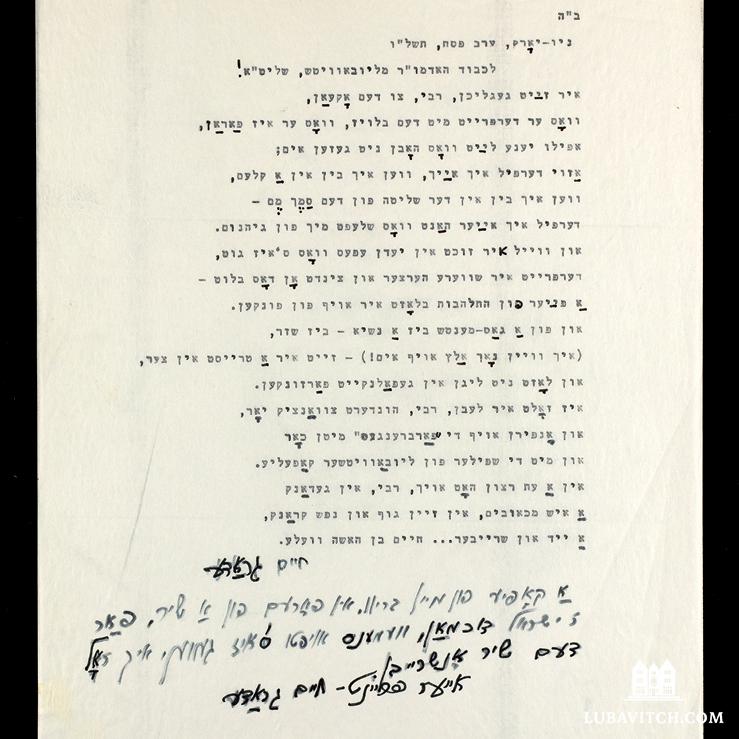 ב"ה
ניו-יאָרק, ערב פסח, תשל"ו
לכבוד האדמו"ר מליובאוויטש, שליט"א!
איר זײַט געגליכן, רבי, צו דעם אָקעאַן,
וואָס ער דערפרייט מיט דעם בלויז, וואָס ער איז פאַראַן,
אפילו יענע לײַט וואָס האָבן ניט געזען אים;
אַזוי דערפיל איך אײַך, ווען איך בין אין אַ קלעם,
ווען איך בין אין דער שליטה פון דעם סַמֶך מֶם –
דערפיל איך אײַער האַנט וואָס שלעפט מיך פון גיהנום.
און ווייל איר זוכט אין יעדן עפעס וואָס ס'איז גוט,
דערפרייט איר שווערע הערצער און צינדט אָן דאָס בלוט –
אַ פײַער פון התלהבות בלאָזט איר אויף פון פונקען.
און פון אַ גאַס-מענטש ביז אַ נשיא – ביז שזר,
(איך וויין נאָך אַלץ אויף אים!) – זייט איר אַ טרייסט אין צער,
און לאָזט ניט ליגן אין געפאַלנקייט פאַרזונקען.
איז זאָלט איר לעבן, רבי, הונדערט צוואַנציק יאָר,
און אָנפירן אויף די "פאַרברענגעס" מיטן כאָר
און מיט די שפילער פון ליובאַוויטשער קאַפעליע.
אין אַ עת רצון האָט אויך, רבי, אין געדאַנק
אַ איש מכאובים, אין זיין גוף און נפש קראַנק,
אַ ייד און שרייבער... חיים בן האשה וועלע.
חיים גראַדע
אַ קאָפּיע פון מיין בריוו, אין פאָרעם פון אַ שיר, פאַר
ר' ישראל דוכמאַן, וועמענס אויפטו ס'איז געווען, איך זאָל
דעם שיר אָנשרייבן.
אייער פריינט – חיים גראַדע
LUBAVITCH.COM